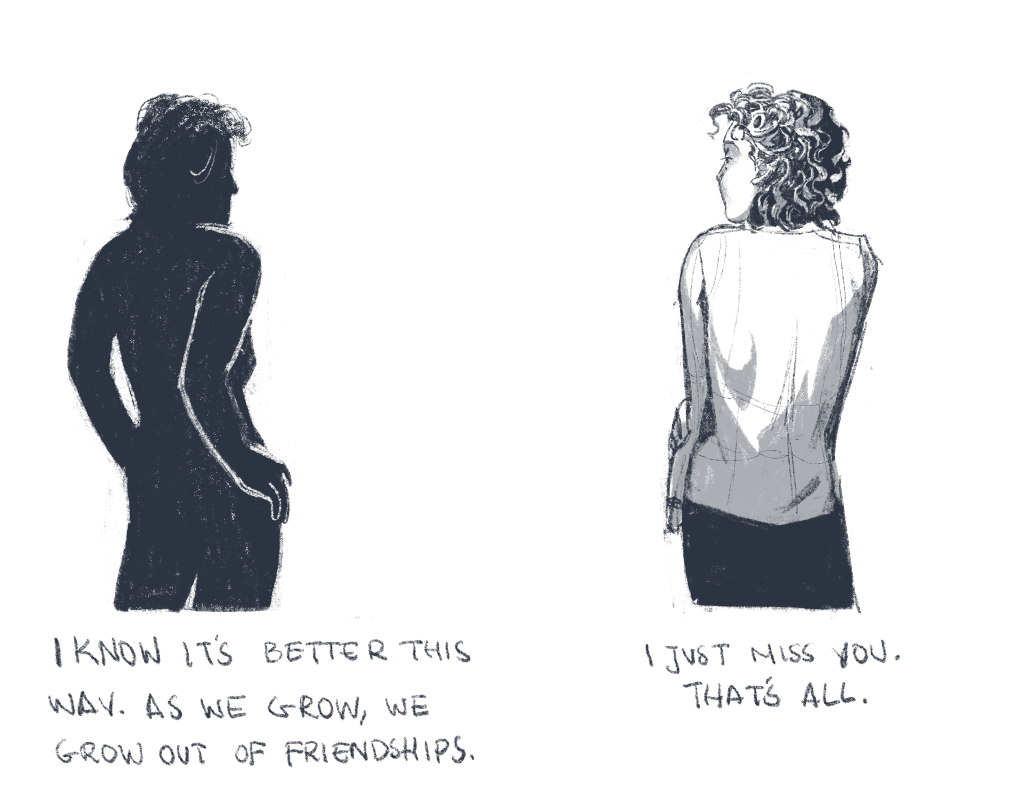 I KNOW IT'S BETTER THIS
WAY. AS WE GROW, WE
GROW OUT OF FRIENDSHIPS.
I JUST MISS YOU.
THAT'S ALL.